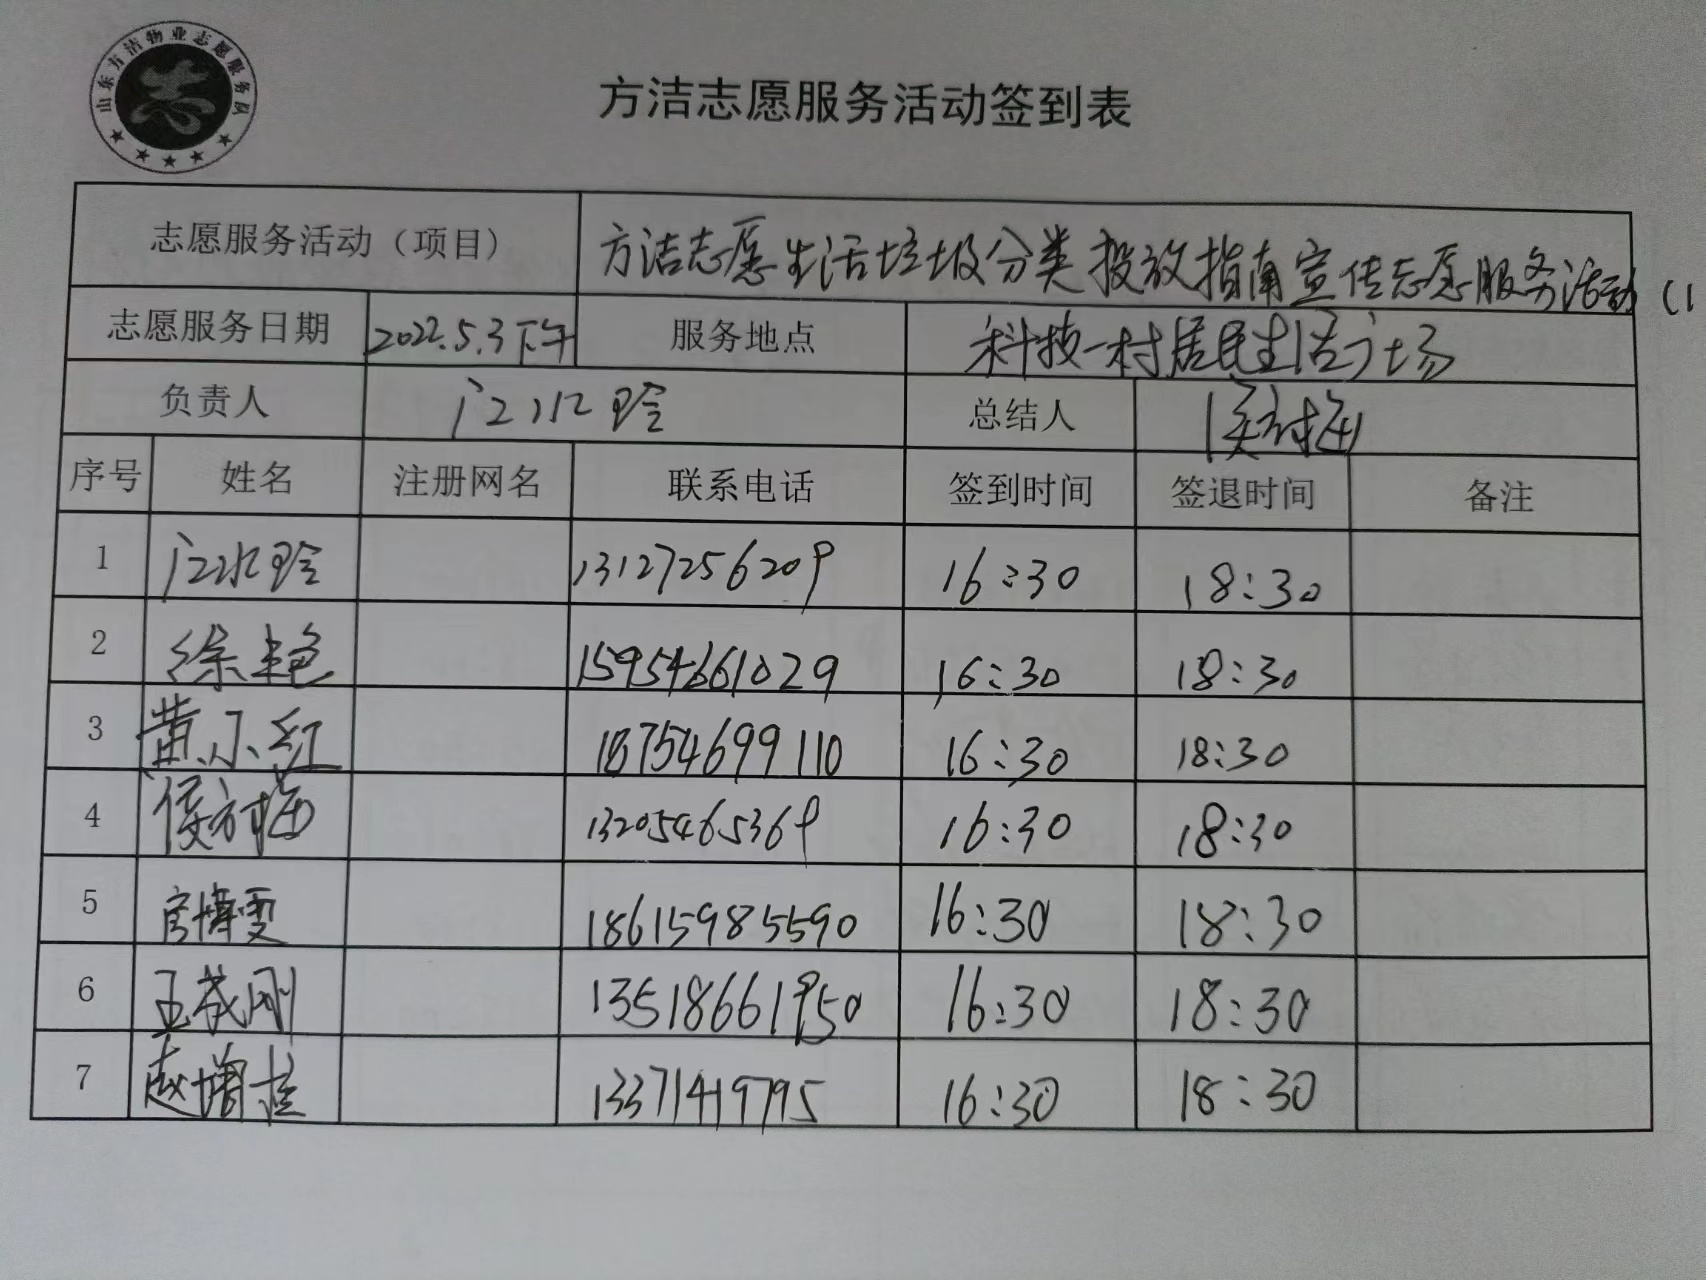 山东方洁物业志愿服务队
志
方洁志愿服务活动签到表
志愿服务活动（项目） 方洁志愿生活垃圾分类投放指南宣传志愿服务活动（1
志愿服务日期 2022.5.3下午 服务地点 科技一村居民生活广场
负责人 江水玲 总结人 侯方梅
序号 姓名 注册网名 联系电话 签到时间 签退时间 备注
1 江水玲 13127256209 16:30 18:30
2 徐艳 15954661029 16:30 18:30
3 黄小红 18754699110 16:30 18:30
4 侯方梅 13205465369 16:30 18:30
5 官博雯 18615985590 16:30 18:30
6 王茂刚 13518661950 16:30 18:30
7 赵增 13371419795 16:30 18:30